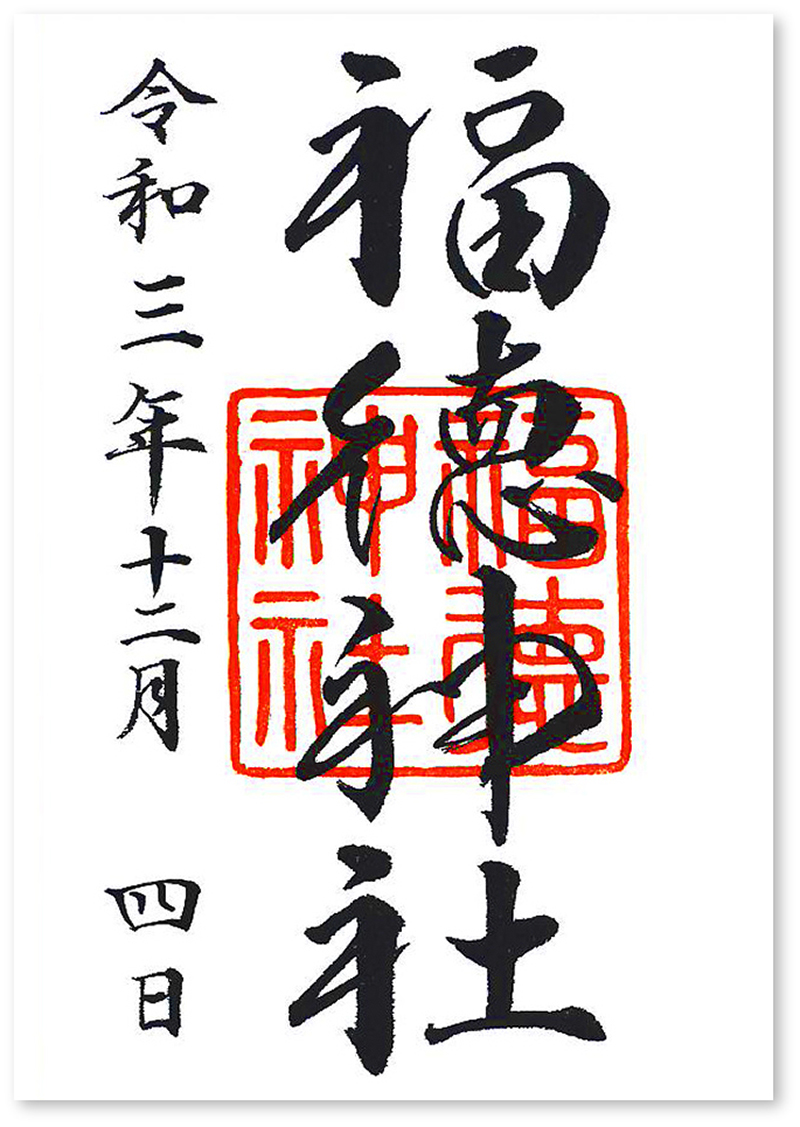 福徳神社
令和三年十二月 四日
福徳
神社